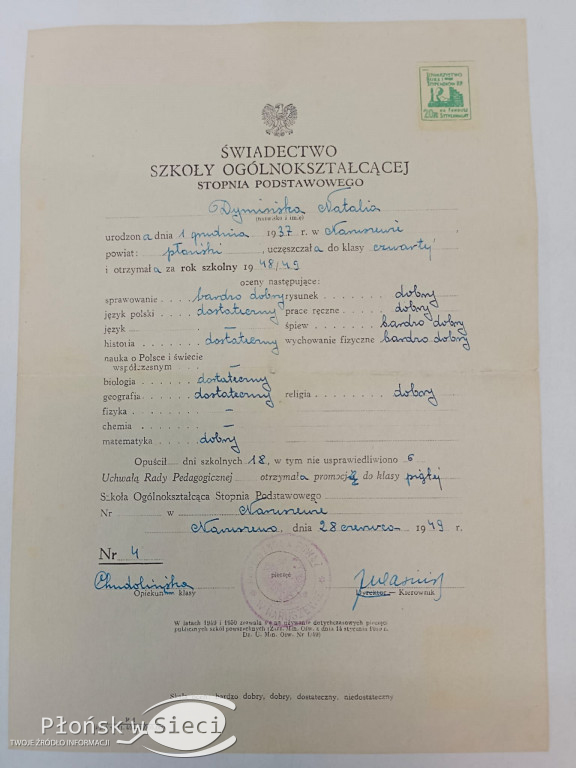 TOWARZYSTWO
BURS I
STYPENDIÓW RP
ZŁ.
20
NA FUNDUSZ
STYPENDIALNY
ŚWIADECTWO
SZKOŁY OGÓLNOKSZTAŁCĄCEJ
STOPNIA PODSTAWOWEGO
Dymińska Natalia
(nazwisko i imię)
urodzona dnia 1 grudnia 1937 r. w Naruszewie
powiat: płoński, uczęszczała do klasy czwartej
i otrzymała za rok szkolny 1948/49
oceny następujące:
sprawowanie . . . bardzo dobry rysunek . . . . . . dobry
język polski . . . . dostateczny prace ręczne . . . . dobry
język . . . . – śpiew . . . . . . . bardzo dobry
historia . . . . . . dostateczny wychowanie fizyczne bardzo dobry
nauka o Polsce i świecie
współczesnym . . . –
biologia . . . . . dostateczny
geografia . . . . . dostateczny religia . . . . . . dobry
fizyka . . . . . . –
chemia . . . . . . –
matematyka . . . . dobry
Opuścił dni szkolnych 18, w tym nie usprawiedliwiono 6
Uchwałą Rady Pedagogicznej otrzymała promocję do klasy piątej
Szkoła Ogólnokształcąca Stopnia Podstawowego
Nr w Naruszewie
Naruszewo, dnia 28 czerwca 1949 r.
Nr 4
Chudolińska
pieczęć
Opiekun klasy
Dyrektor – Kierownik
W latach 1949 i 1950 zezwala się na używanie dotychczasowych pieczęci
publicznych szkół powszechnych (Zarz. Min. Ośw. z dnia 14 stycznia 1949 r.
Dz. U. Min. Ośw. Nr 1/49)
bardzo dobry, dobry, dostateczny, niedostateczny
Płońsk w Sieci
TWOJE ŹRÓDŁO INFORMACJI